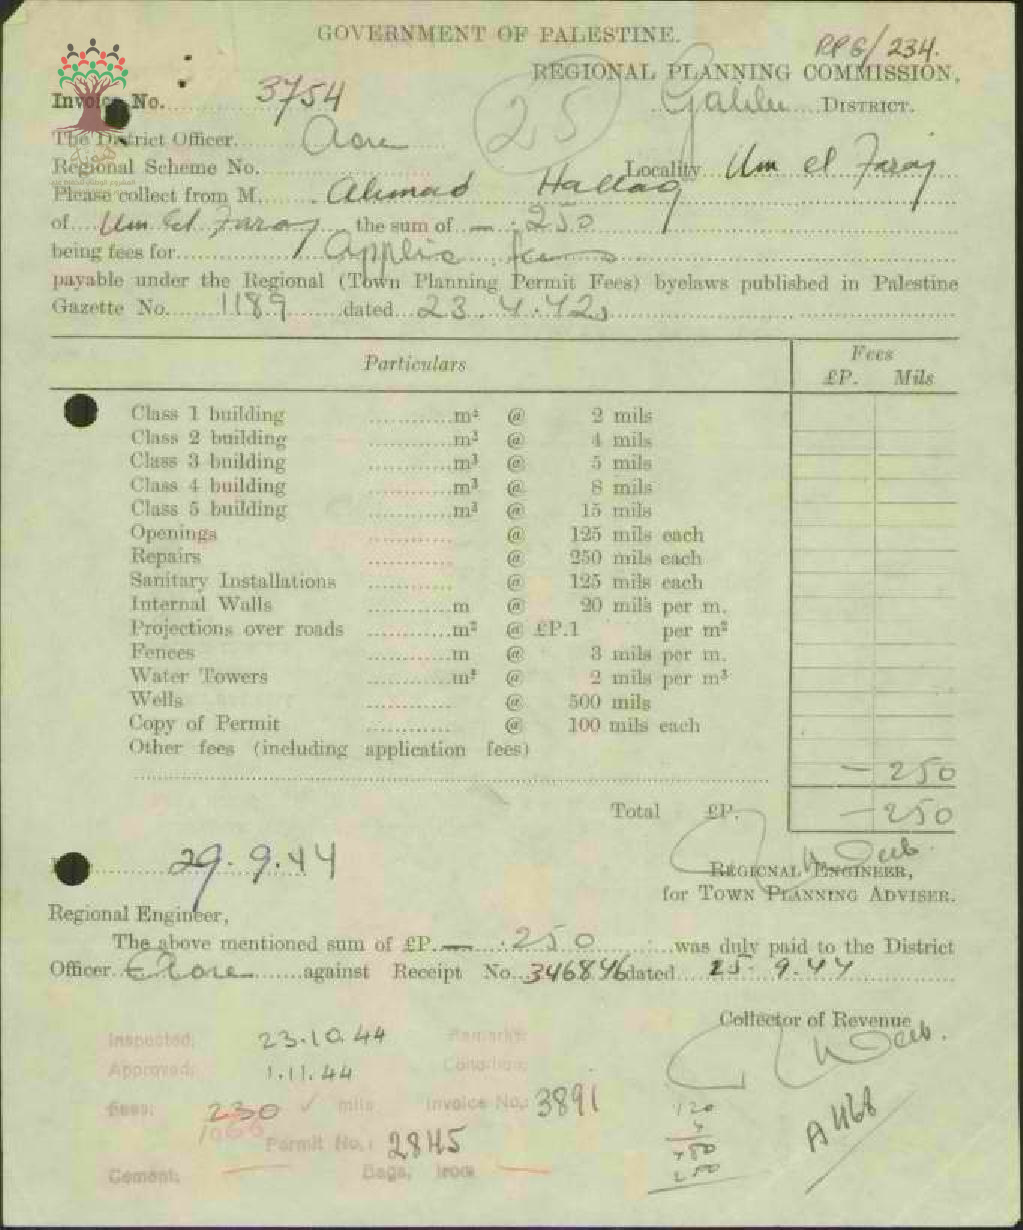 GOVERNMENT OF PALESTINE.
RPG/234.
REGIONAL PLANNING COMMISSION,
Invoice No. 3754
25
Galilee DISTRICT.
The District Officer. Acre
Regional Scheme No. Locality Um el Faraj
Please collect from M. Ahmad Hallaq
of Um El Faraj the sum of — .250
being fees for Applic. fees
payable under the Regional (Town Planning Permit Fees) byelaws published in Palestine
Gazette No. 1189 dated 23.4.42
Particulars Fees
£P. Mils
Class 1 building m² @ 2 mils
Class 2 building m³ @ 4 mils
Class 3 building m³ @ 5 mils
Class 4 building m³ @ 8 mils
Class 5 building m³ @ 15 mils
Openings @ 125 mils each
Repairs @ 250 mils each
Sanitary Installations @ 125 mils each
Internal Walls m @ 20 mils per m.
Projections over roads m² @ £P.1 per m²
Fences m @ 3 mils per m.
Water Towers m³ @ 2 mils per m³
Wells @ 500 mils
Copy of Permit @ 100 mils each
Other fees (including application fees)
— 250
Total £P. — 250
29.9.44
REGIONAL ENGINEER,
for TOWN PLANNING ADVISER.
Regional Engineer,
The above mentioned sum of £P. — .250 was duly paid to the District
Officer. Acre against Receipt No. 346846 dated 25.9.44
Collector of Revenue
Inspected: 23.10.44 Remarks:
Approved: 1.11.44 Condition:
Fees: 230 ✓ mils Invoice No.: 3891
1066
Permit No.: 2845
Cement: Bags, Iron
120
250
A1168